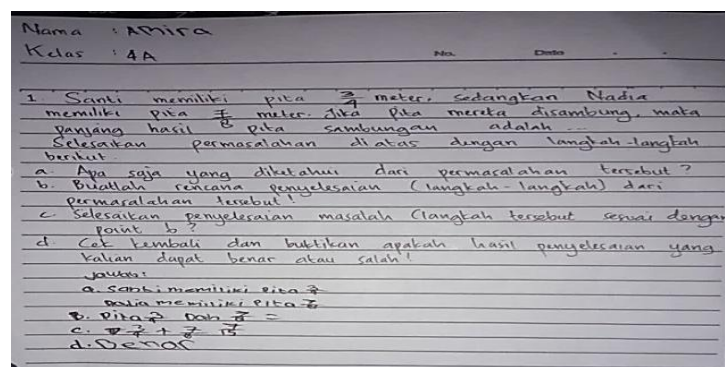 Nama : Amira
Kelas : 4A
No. Date
1. Santi memiliki pita 3/4 meter, sedangkan Nadia
memiliki pita 7/8 meter. Jika pita mereka disambung, maka
panjang hasil pita sambungan adalah ...
Selesaikan permasalahan di atas dengan langkah-langkah
berikut.
a. Apa saja yang diketahui dari permasalahan tersebut?
b. Buatlah rencana penyelesaian (langkah-langkah) dari
permasalahan tersebut!
c. Selesaikan penyelesaian masalah (langkah tersebut sesuai dengan
point b?
d. Cek kembali dan buktikan apakah hasil penyelesaian yang
kalian dapat benar atau salah!
Jawab:
a. Santi memiliki pita
memiliki pita
b. Pita Dan =
c. +
d. Benar